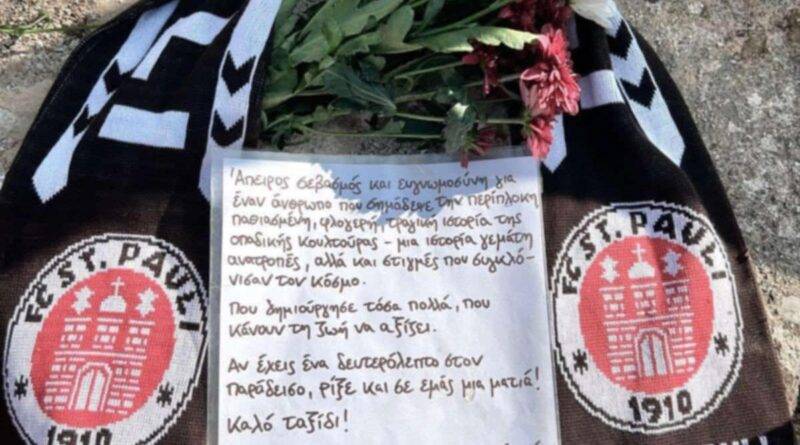 Άπειρος σεβασμός και ευγνωμοσύνη για
έναν άνθρωπο που σημάδεψε την περίπλοκη
παθιασμένη, φλογερή, τραγική ιστορία της
οπαδικής κουλτούρας - μια ιστορία γεμάτη
ανατροπές, αλλά και στιγμές που συγκλό-
νισαν τον κόσμο.
Που δημιούργησε τόσα πολλά, που
κάνουν τη ζωή να αξίζει.
Αν έχεις ένα δευτερόλεπτο στον
παράδεισο, ρίξε και σε εμάς μια ματιά!
Καλό ταξίδι!
FC ST. PAULI
1910
FC ST. PAULI
1910